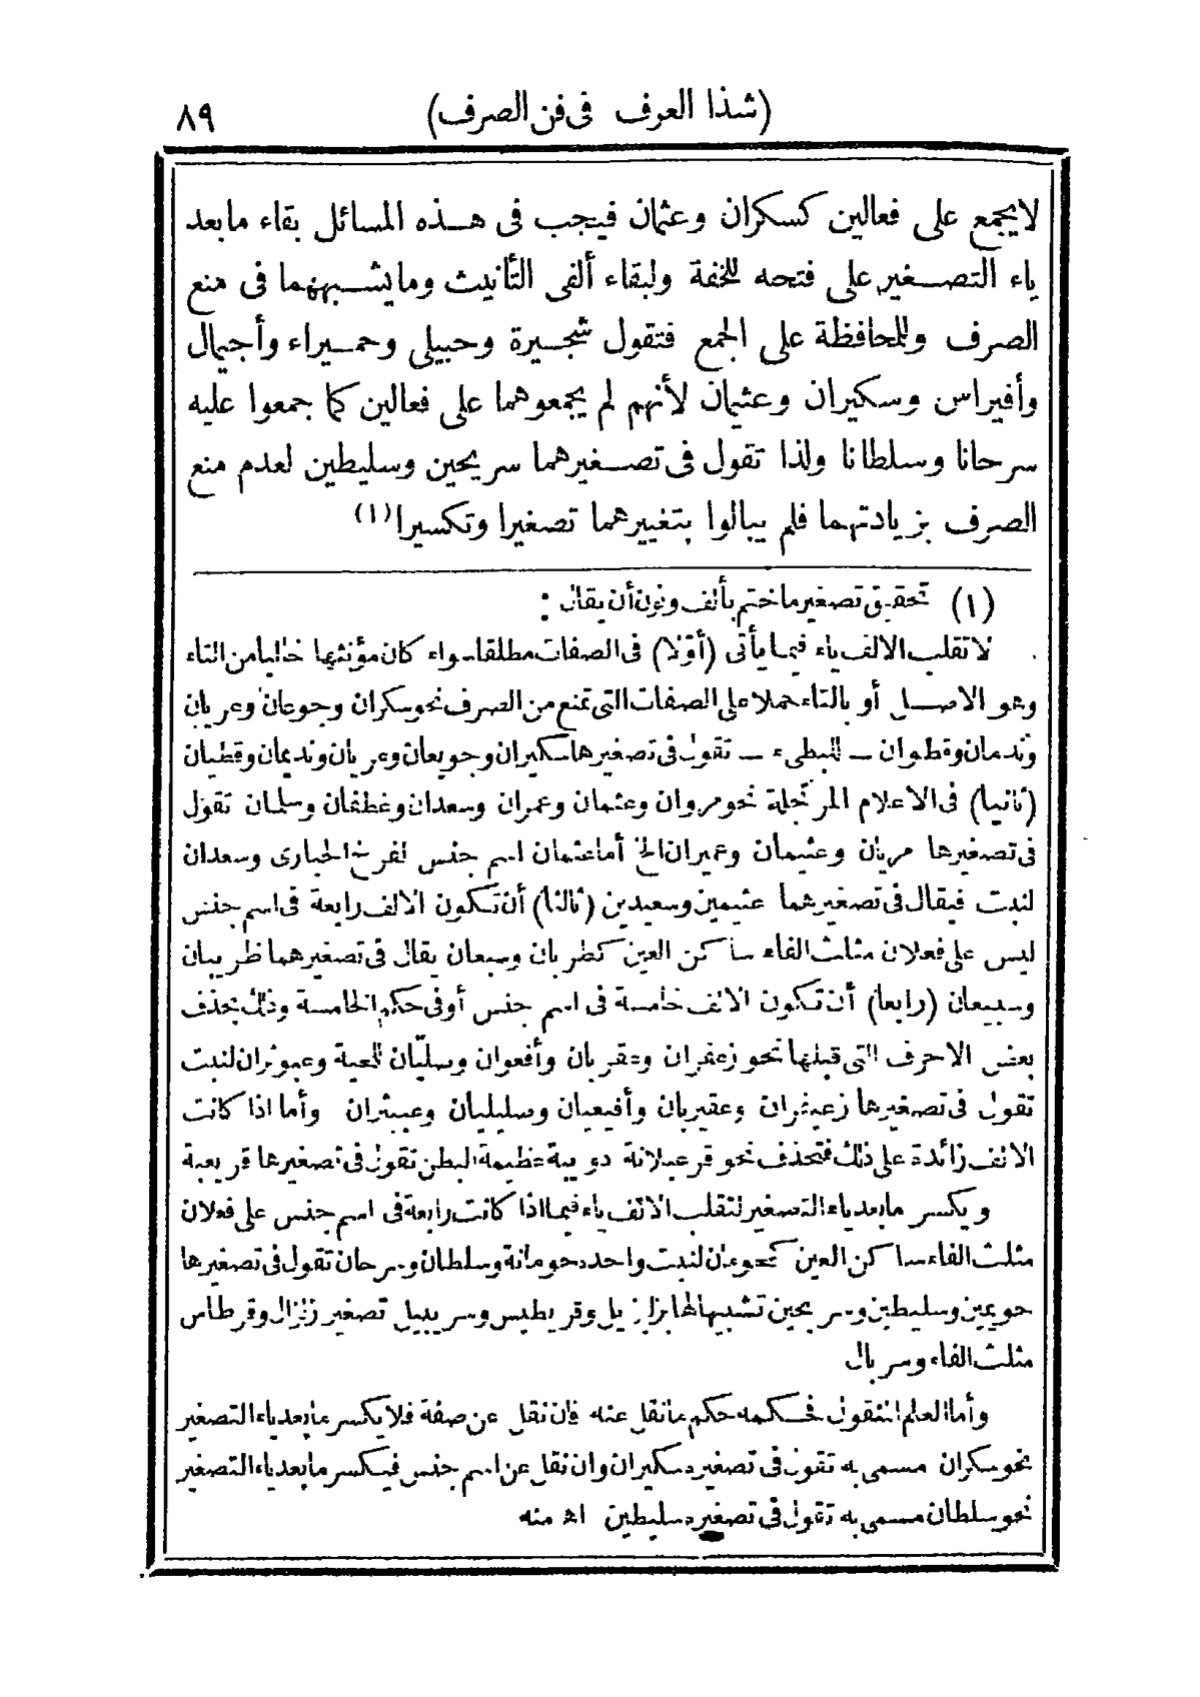 (شذا العرف فى فن الصرف) ٨٩
لا يجمع على فعالين كسكران وعثمان فيجب فى هذه المسائل بقاء ما بعد
ياء التصغير على فتحه للخفة ولبقاء ألفى التأنيث وما يشبههما فى منع
الصرف وللمحافظة على الجمع فتقول شجيرة وحبيلى وحميراء وأجيمال
وأفيراس وسكيران وعثيمان لأنهم لم يجمعوهما على فعالين كما جمعوا عليه
سرحانا وسلطانا ولذا تقول فى تصغيرهما سريحين وسليطين لعدم منع
الصرف بزيادتهما فلم يبالوا بتغييرهما تصغيرا وتكسيرا (١)
(١) تحقيق تصغير ما ختم بألف ونون أن يقال :
لا تقلب الالف ياء فيما يأتى (أوّلا) فى الصفات مطلقا سواء كان مؤنثها خاليا من التاء
وهو الاصل أو بالتاء حملا على الصفات التى تمنع من الصرف نحو سكران وجوعان وعريان
وندمان وقطوان - للبطىء - تقول فى تصغيرها سكيران وجويعان وعريان ونديمان وقطيان
(ثانيا) فى الاعلام المرتجلة نحو مروان وعثمان وعمران وسعدان وغطفان وسلمان تقول
فى تصغيرها مريان وعثيمان وعميران الخ أما عثمان اسم جنس لفرخ الحبارى وسعدان
لنبت فيقال فى تصغيرهما عثيمين وسعيدين (ثالثا) أن تكون الالف رابعة فى اسم جنس
ليس على فعلان مثلث الفاء ساكن العين كظربان وسبعان يقال فى تصغيرهما ظريبان
وسبيعان (رابعا) أن تكون الالف خامسة فى اسم جنس أو فى حكم الخامسة وذلك بحذف
بعض الاحرف التى قبلها نحو زعفران وعقربان وأفعوان وصليّان للحية وعبوثران لنبت
تقول فى تصغيرها زعيفران وعقيربان وأفيعيان وصليليان وعبيثران وأما اذا كانت
الالف زائدة على ذلك فتحذف نحو قرعبلانة دويبة عظيمة البطن تقول فى تصغيرها قريعبة
ويكسر ما بعد ياء التصغير لتقلب الالف ياء فيما اذا كانت رابعة فى اسم جنس على فعلان
مثلث الفاء ساكن العين كحومان لنبت واحده حومانة وسلطان وسرحان تقول فى تصغيرها
حويمين وسليطين وسريحين تشبيها لها بزليزيل وقريطيس وسريبيل تصغير زلزال وقرطاس
مثلث الفاء وسربال
وأما العلم المنقول فحكمه حكم ما نقل عنه فان نقل عن صفة فلا يكسر ما بعد ياء التصغير
نحو سكران مسمى به تقول فى تصغيره سكيران وان نقل عن اسم جنس فيكسر ما بعد ياء التصغير
نحو سلطان مسمى به تقول فى تصغيره سليطين اه منه